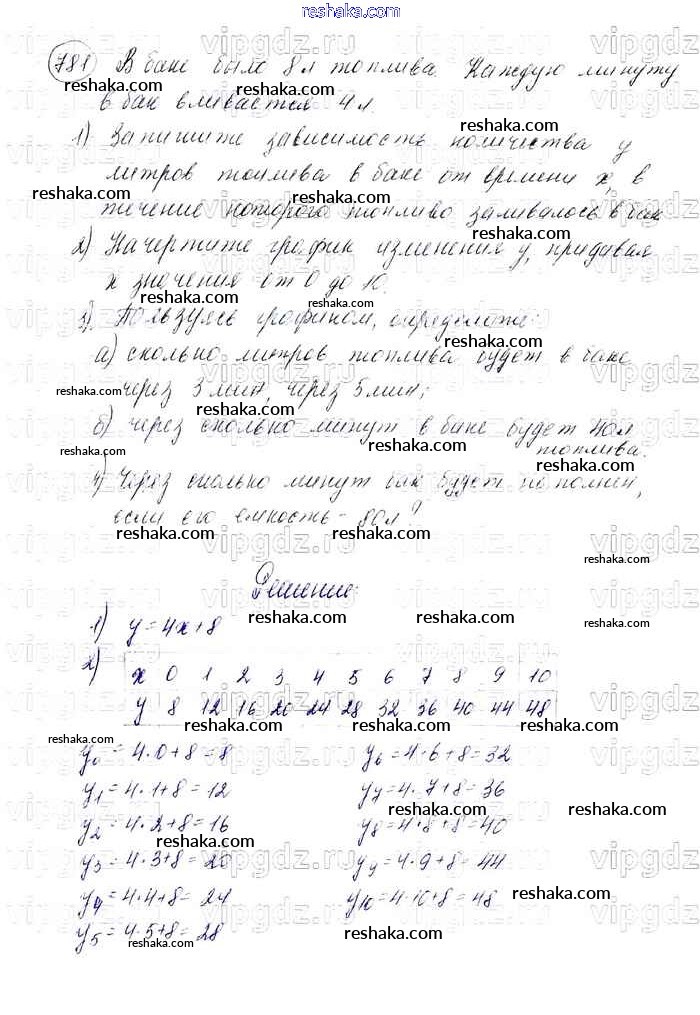 reshaka.com
781 В баке было 8 л топлива. Каждую минуту
в бак вливается 4 л.
1) Запишите зависимость количества y
литров топлива в баке от времени x, в
течение которого топливо заливалось в бак
2) Начертите график изменения y, придавая
x значения от 0 до 10.
3) Пользуясь графиком, определите:
а) сколько литров топлива будет в баке
через 3 мин, через 5 мин;
б) через сколько минут в баке будет 40 л
топлива.
4) Через сколько минут бак будет наполнен,
если его емкость - 80 л?
Решение:
1) y = 4x+8
2) x 0 1 2 3 4 5 6 7 8 9 10
y 8 12 16 20 24 28 32 36 40 44 48
y₀ = 4·0+8=8 y₆ = 4·6+8=32
y₁ = 4·1+8=12 y₇ = 4·7+8=36
y₂ = 4·2+8=16 y₈ = 4·8+8=40
y₃ = 4·3+8=20 y₉ = 4·9+8=44
y₄ = 4·4+8=24 y₁₀=4·10+8=48
y₅ = 4·5+8=28